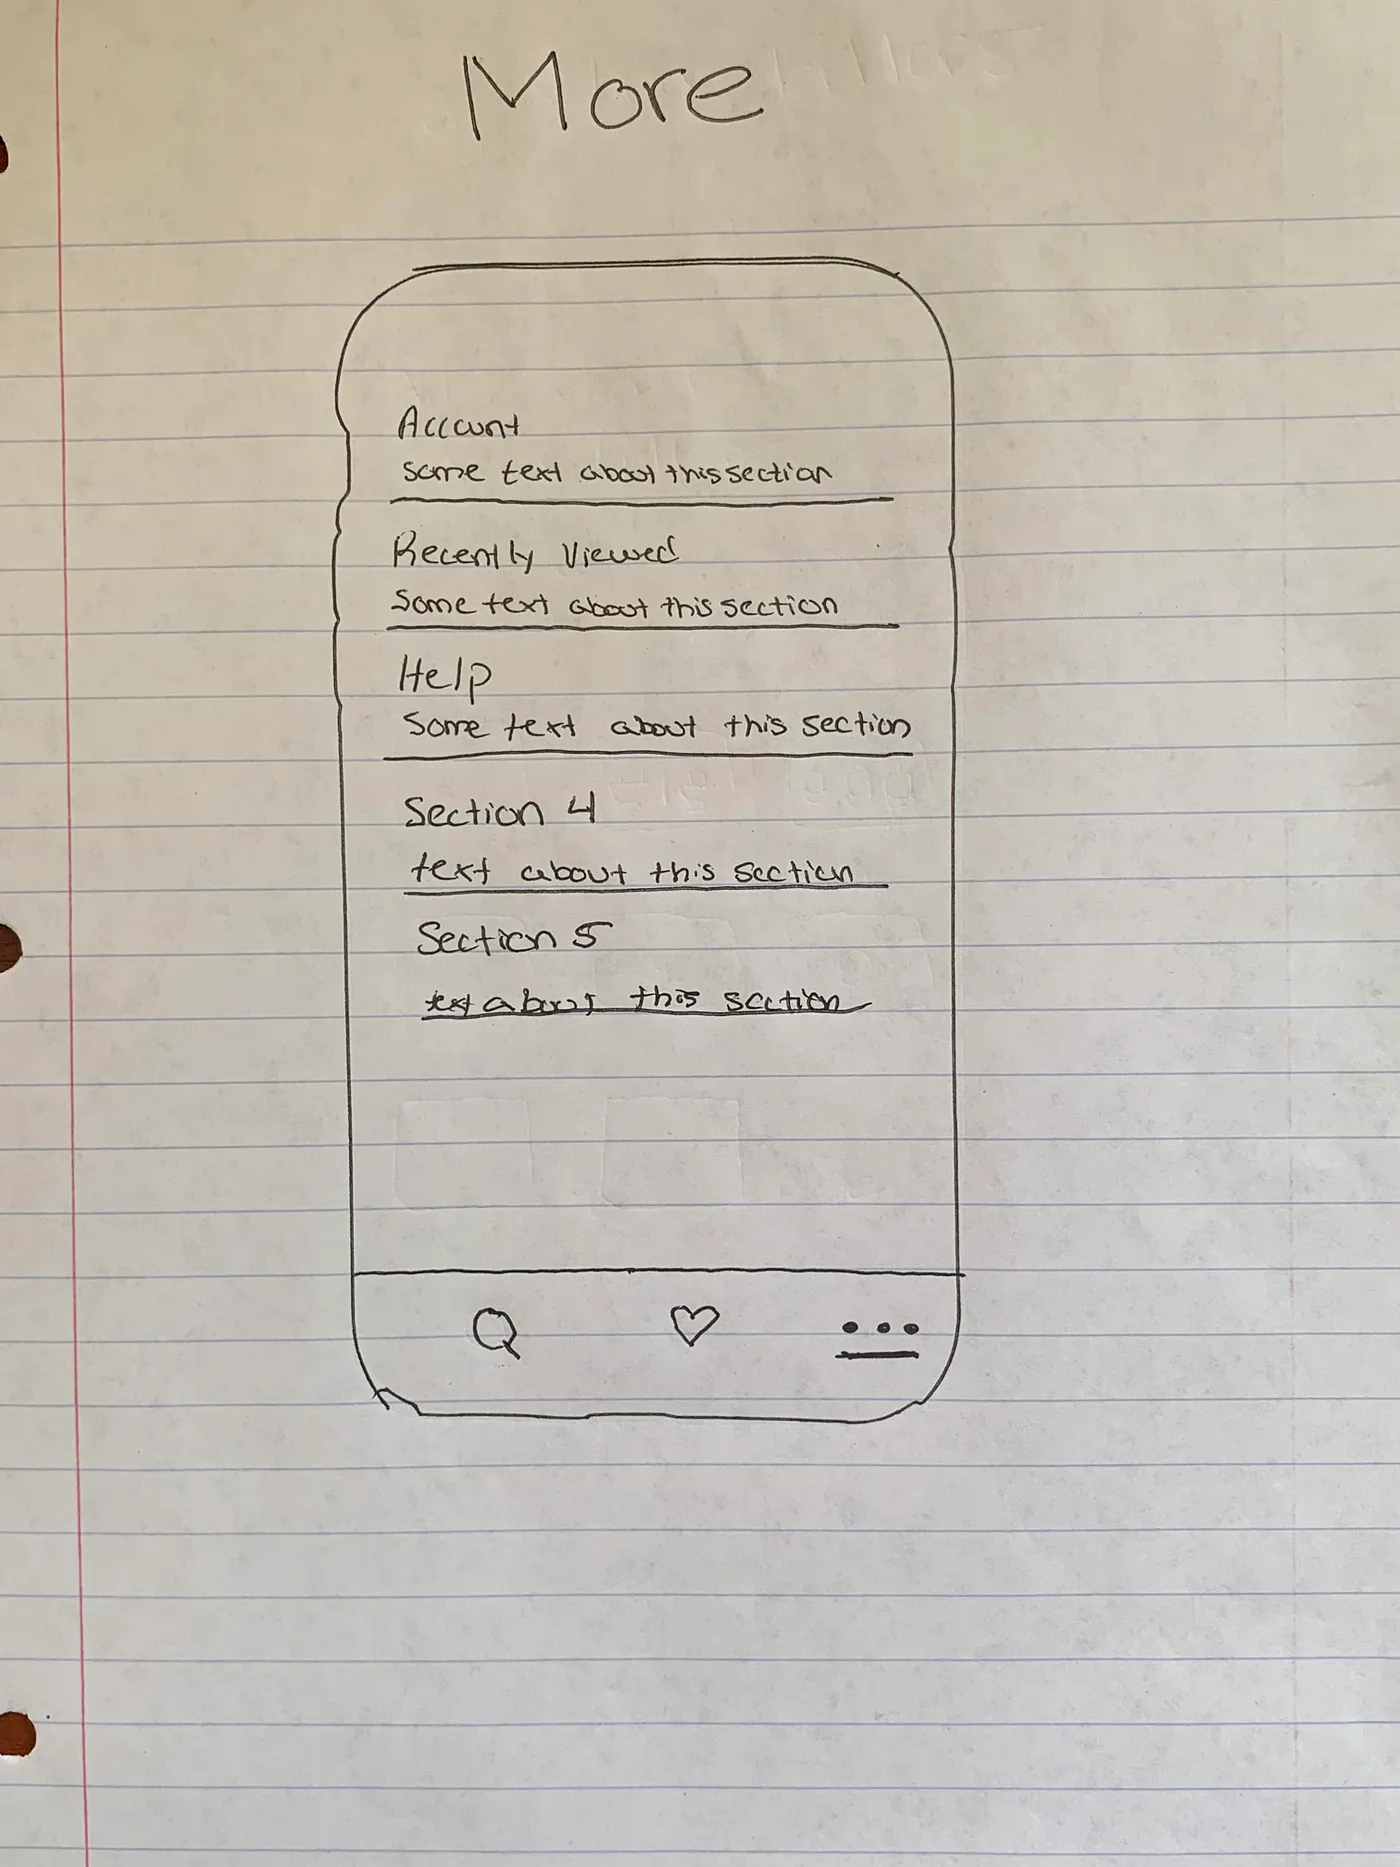 More
Account
some text about this section
Recently Viewed
Some text about this section
Help
Some text about this section
Section 4
text about this section
Section 5
text about this section